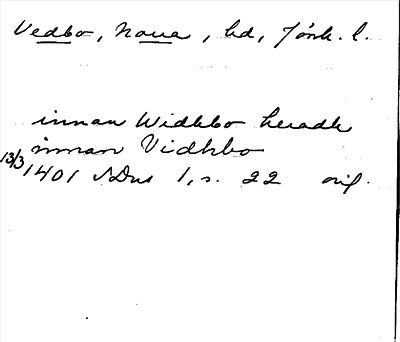 Vedbo, Norra, hd, Jönk. l.
innan Widhbo heradh
innan Vidhbo
13/3 1401 SDns 1, s. 22 orig.